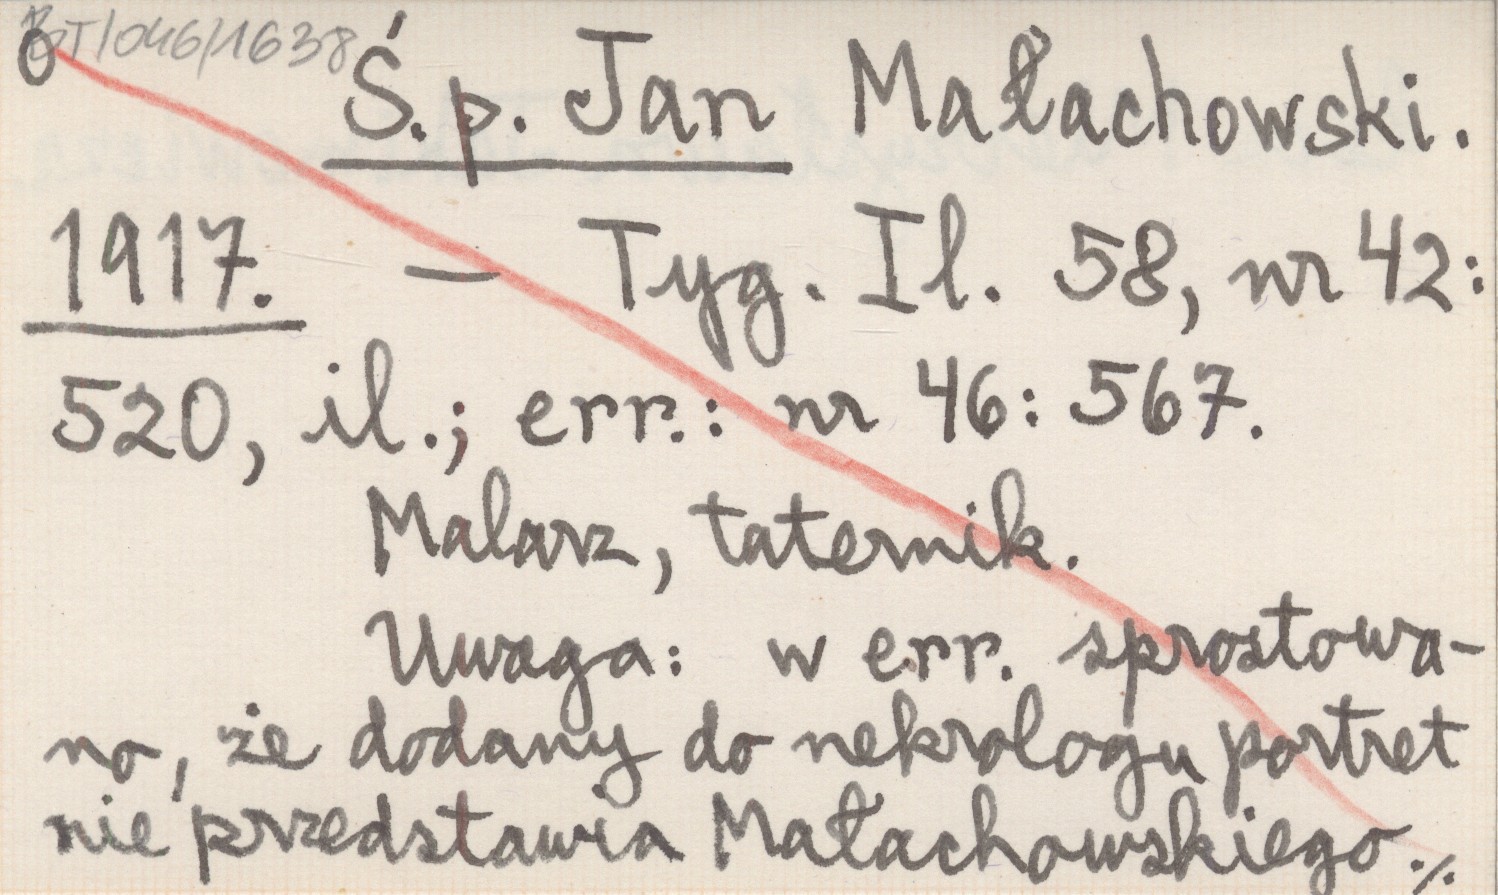 BT/046/1638
Ś.p. Jan Małachowski.
1917. – Tyg. Il. 58, nr 42:
520, il.; err.: nr 46: 567.
Malarz, taternik.
Uwaga: w err. sprostowa-
no, że dodany do nekrologu portret
nie przedstawia Małachowskiego ./.